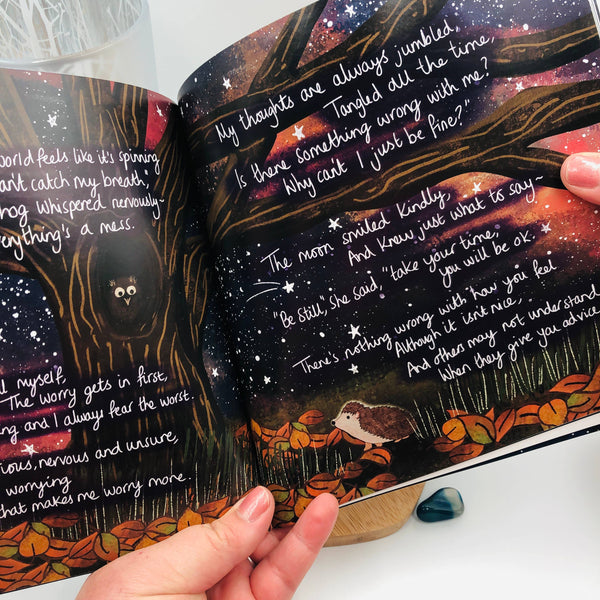 world feels like it's spinning
can't catch my breath,"
hog whispered nervously~
everything's a mess.
myself,
The worry gets in first,
and I always fear the worst.
nervous and unsure,
worrying
that makes me worry more.
My thoughts are always jumbled,
Tangled all the time,
Is there something wrong with me?
Why can't I just be fine?"
The moon smiled kindly,
And knew just what to say~
"Be still", she said, "take your time,
you will be ok.
There's nothing wrong with how you feel
Although it isn't nice,
And others may not understand
When they give you advice